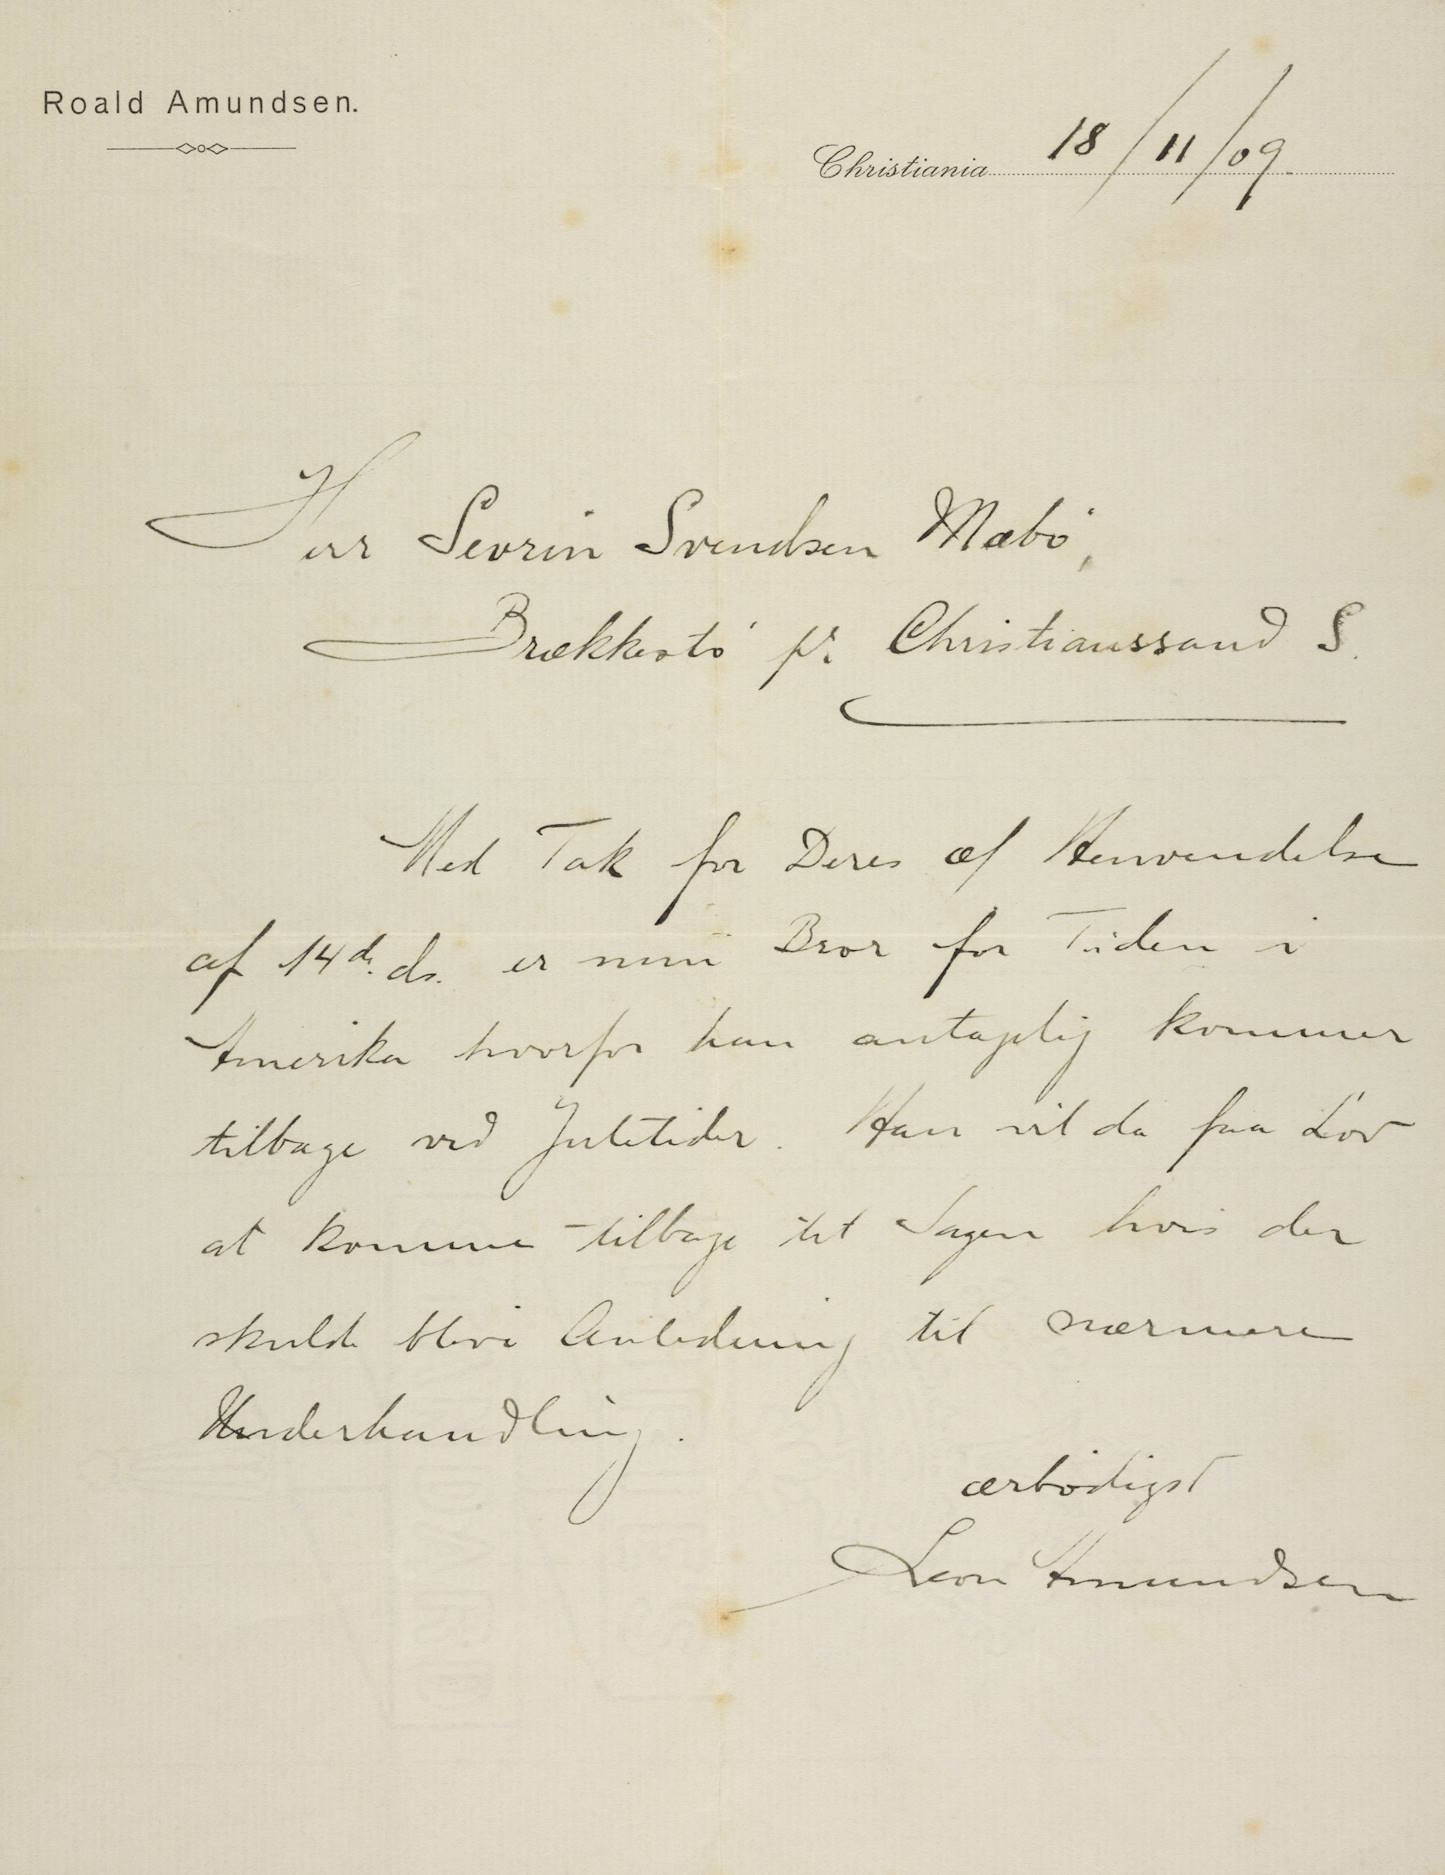 Roald Amundsen.
Christiania 18/11/09.
Herr Sevrin Svendsen Mæbö,
Brækkestö pr. Christianssand S.
Med Tak for Deres æf Henvendelse
af 14 d. ds. er min Bror for Tiden i
Amerika hvorfor han antagelig kommer
tilbage ved Juletider. Han vil da faa Lov
at komme tilbage til Sagen hvis der
skulde blive Anledning til nærmere
Underhandling.
ærbödigst
Leon Amundsen